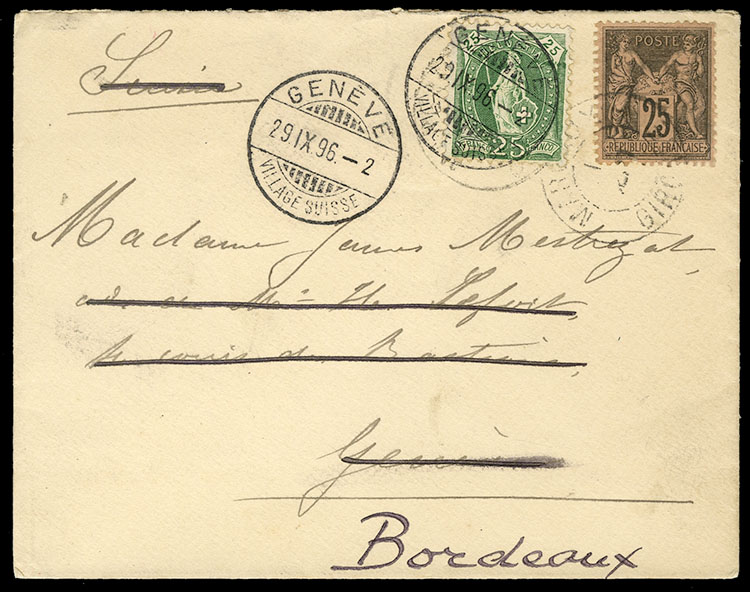 Suisse
GENÈVE
29 IX 96.–2
VILLAGE SUISSE
GENÈVE
29 IX 96.–
VILLAGE SUISSE
25 HELVETIA 25
25
FRANCO
POSTE
25
REPUBLIQUE FRANÇAISE
GIRO
Madame James Mestrezat
de Mme Lefort,
4 cours de Bastions,
Genève
Bordeaux